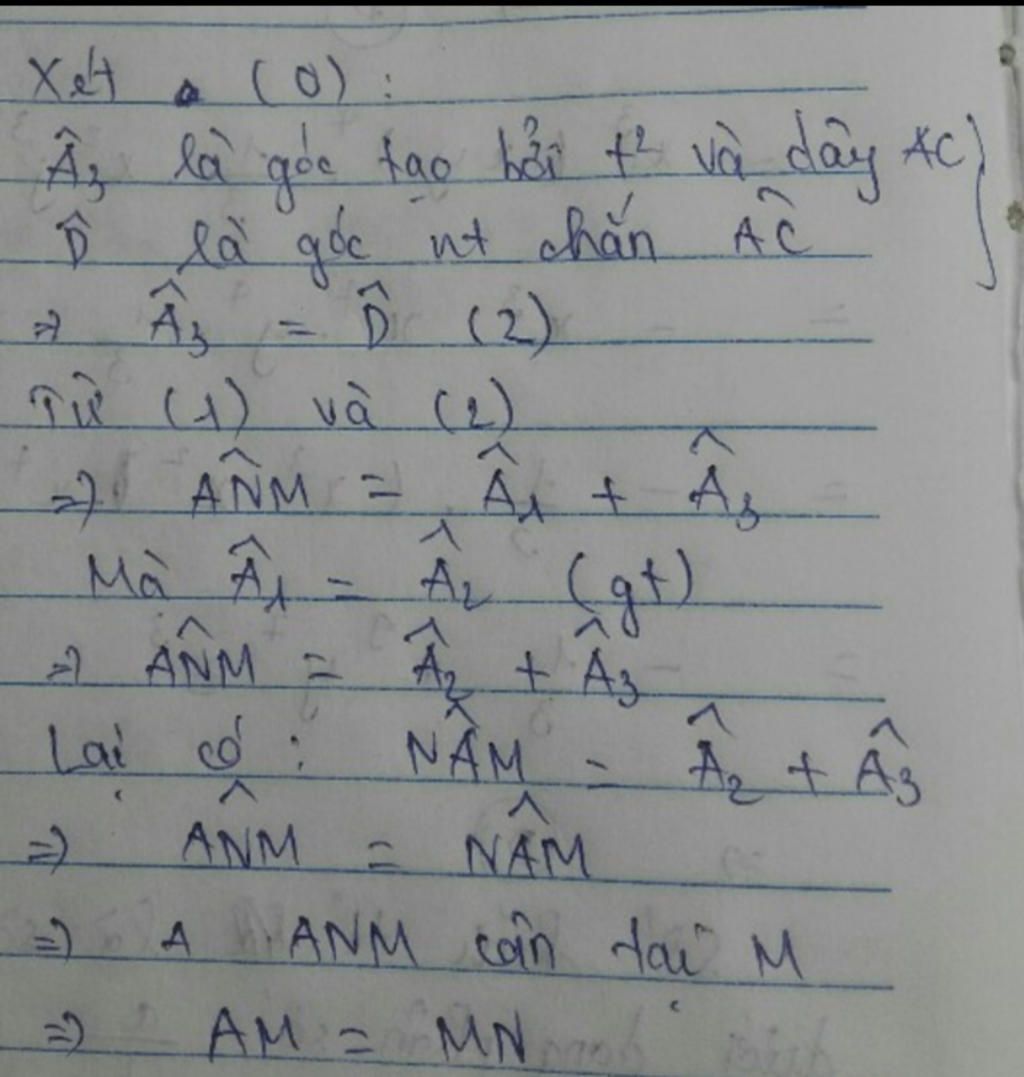 Xét (O) :
Â₃ là góc tạo bởi t² và dây AC }
D̂ là góc nt chắn AC̑
⇒ Â₃ = D̂ (2)
Từ (1) và (2)
⇒ AN̂M = Â₁ + Â₃
Mà Â₁ = Â₂ (gt)
⇒ AN̂M = Â₂ + Â₃
Lại có : NÂM = Â₂ + Â₃
⇒ AN̂M = NÂM
⇒ Δ ANM cân tại M
⇒ AM = MN